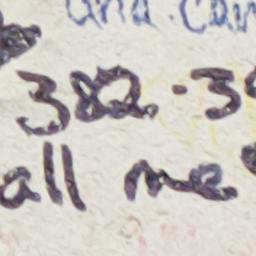 and
382-3
all me